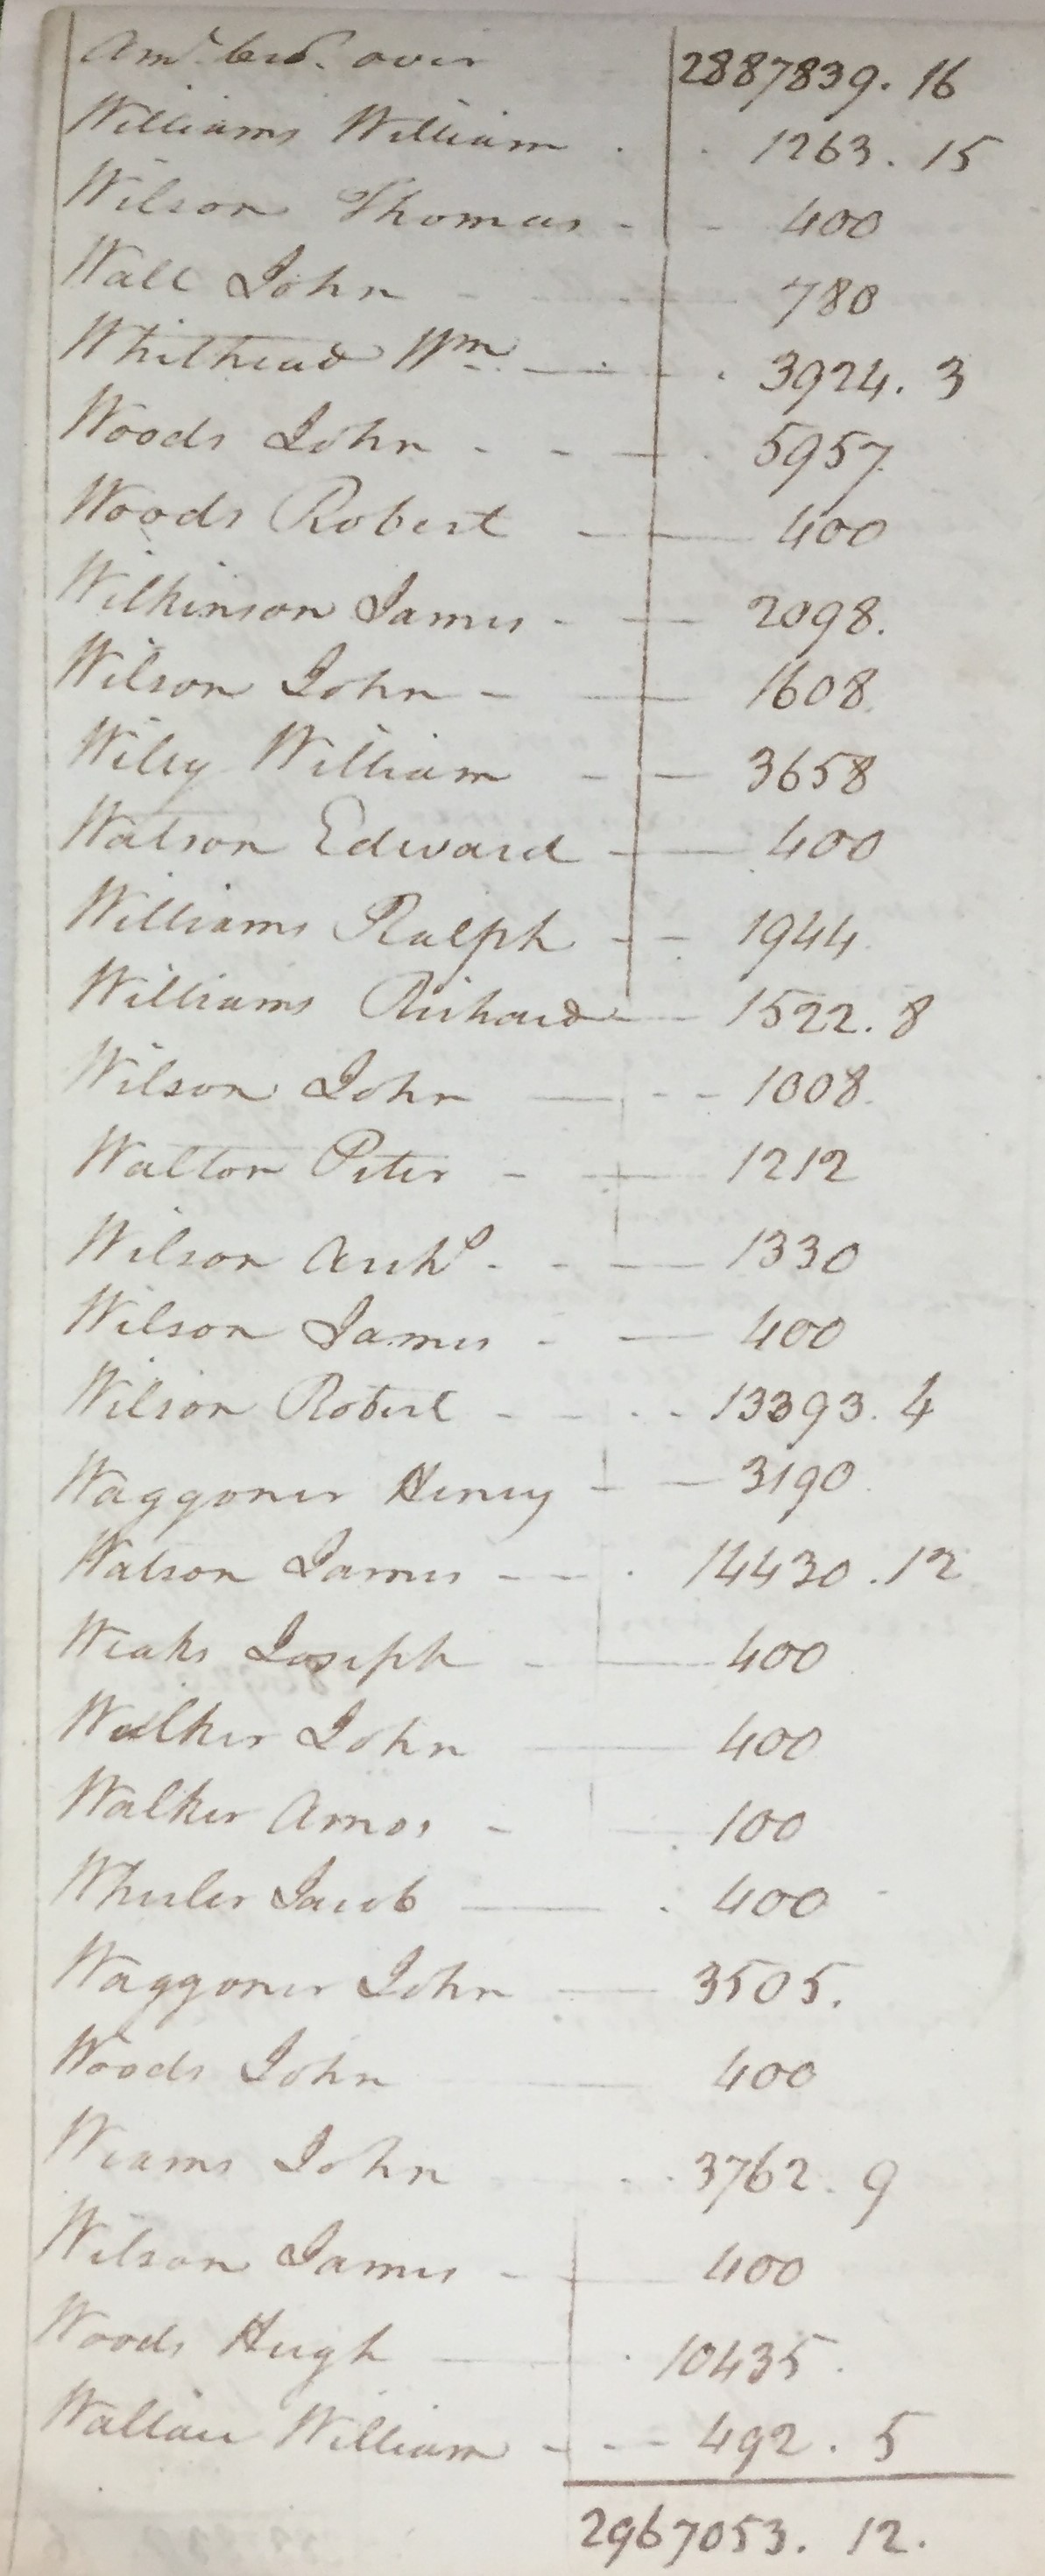 Amt. brot. over 2887839. 16
Williams William 1263. 15
Wilson Thomas 400
Wall John 780
Whithead Wm. 3924. 3
Woods John 5957
Woods Robert 400
Wilkinson James 2098.
Wilson John 1608
Wiley William 3658
Watson Edward 400
Williams Ralph 1944
Williams Richard 1522. 8
Wilson John 1008
Walton Peter 1212
Wilson Archd. 1330
Wilson James 400
Wilson Robert 13393. 4
Waggoner Henry 3190
Watson James 14430. 12
Weaks Joseph 400
Walker John 400
Walker Amos 100
Wheeler Jacob 400
Waggoner John 3505.
Woods John 400
Weams John 3762. 9
Wilson James 400
Woods Hugh 10435
Wallace William 492. 5
2967053. 12.